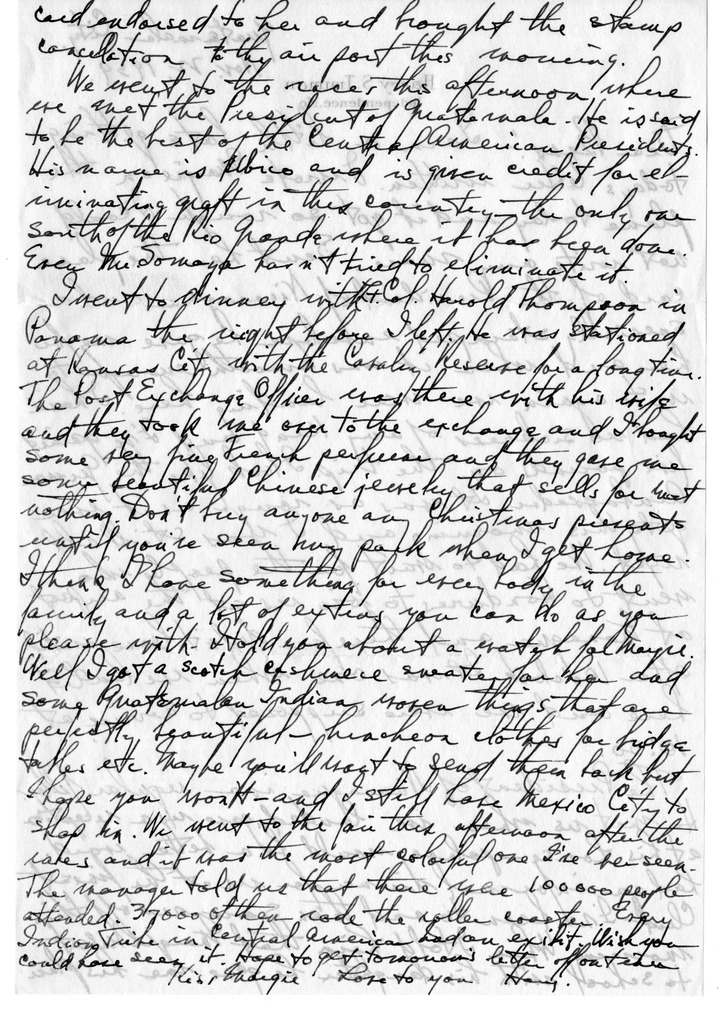 card endorsed to her and brought the stamp
cancelation to the air port this morning.
We went to the races this afternoon where
we met the President of Guatemala. He is said
to be the best of the Central American Presidents.
His name is Ubico and is given credit for el-
iminating graft in this country - the only one
south of the Rio Grande where it has been done.
Even Mr Somoza hasn't tried to eliminate it
I went to dinner with Lt. Col. Harold Thompson in
Panama the night before I left. He was stationed
at Kansas City with the Cavalry Reserve for a long time.
The Post Exchange Officer was there with his wife
and they took me over to the exchange and I bought
some very fine French perfume and they gave me
some beautiful Chinese jewelry that sells for most
nothing. Don't buy anyone any Christmas presents
until you've seen my pack when I get home.
I think I have something for every body in the
family and a lot of extras you can do as you
please with. I told you about a watch for Margie.
Well I got a scotch cashmere sweater for her and
some Guatemalan Indian woven things that are
perfectly beautiful - luncheon clothes for bridge
tables etc. Maybe you'll want to send them back but
I hope you won't - and I still have Mexico City to
shop in. We went to the fair this afternoon after the
races and it was the most colorful one I've ever seen.
The manager told us that there were 100000 people
attended. 37000 of them rode the roller coaster. Every
Indian Tribe in Central American had an exibit. Wish you
could have seen it. Hope to get tomorrow's letter off on time
Kiss Margie Love to you Harry.